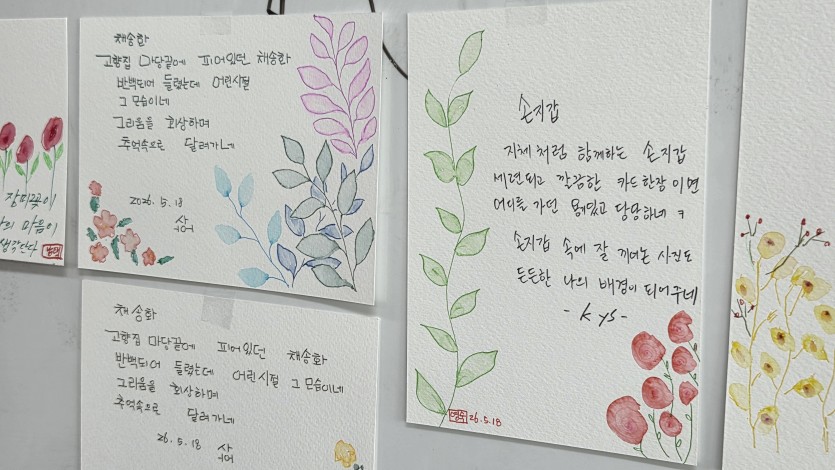 장미꽃이
나의 마음이
생각난다
채송화
고향집 마당끝에 피어있던 채송화
반백되어 들렸는데 어린시절
그 모습이네
그리움을 회상하며
추억속으로 달려가네
2026. 5. 18
채송화
고향집 마당끝에 피어있던 채송화
반백되어 들렸는데 어린시절 그 모습이네
그리움을 회상하며
추억속으로 달려가네
26. 5. 18
손지갑
지체처럼 함께하는 손지갑
세련되고 깔끔한 카드한장이면
어디를 가던 폼있고 당당하네 ㅋ
손지갑 속에 잘 끼어논 사진도
든든한 나의 배경이 되어주네
- kys -
영숙 26. 5. 18